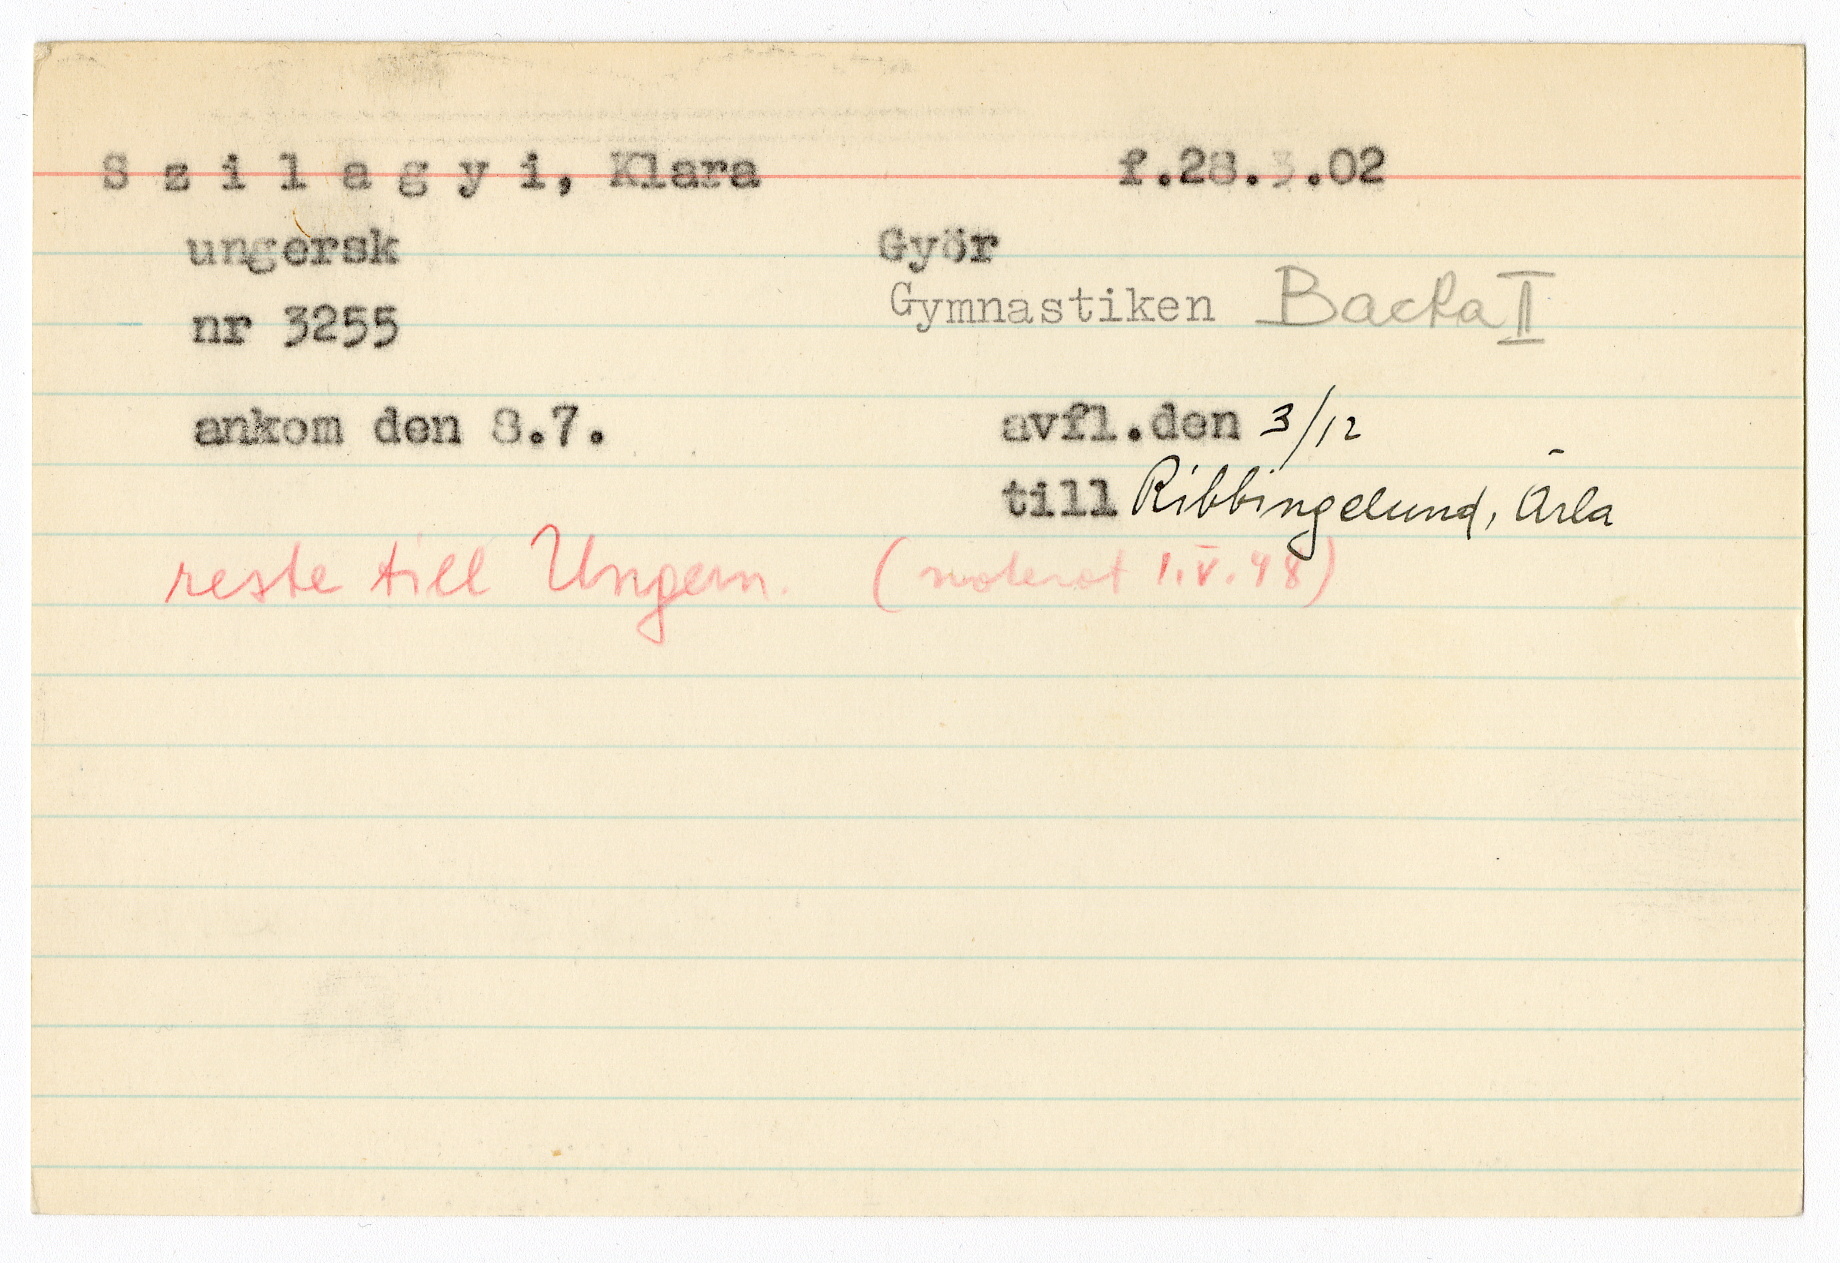 S z i l a g y i, Klara f.28.3.02
ungersk Györ
nr 3255 Gymnastiken Backa II
ankom den 8.7. avfl.den 3/12
till Ribbingelund, Ärla
reste till Ungern. (noterat 1.V.48)